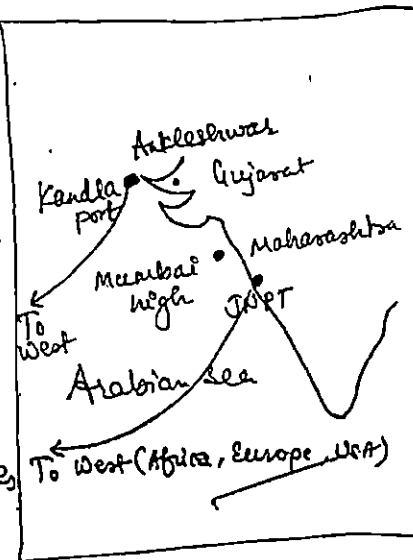 Ankleshwar
Kandla
port
Gujarat
Maharashtra
Mumbai
high
JNPT
To
West
Arabian Sea
To West (Africa, Europe, USA)